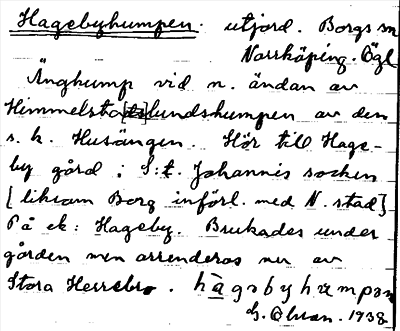 Hagebyhumpen. utjord. Borgs sn
Norrköping. Ögl
Änghump vid n. ändan av
Himmelsta[ds]lundshumpen av den
s. k. Husängen. Hör till Hage-
by gård i S:t. Johannis socken
[liksom Borg införl. med N. stad]
På ek: Hageby. Brukades under
gården men arrenderas nu av
Stora Herrebro. hāgəbyhɯmpən
G. Olson. 1938